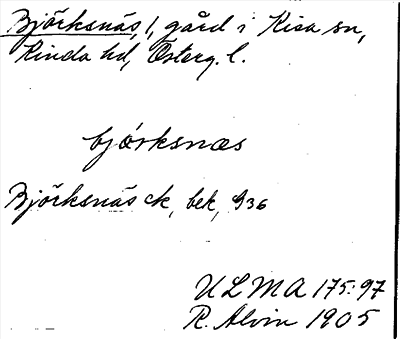 Björksnäs, 1, gård i Kisa sn,
Kinda hd, Österg. l.
björksnæs
Björksnäs ck, bek, 936
ULMA 175:97
R. Alvin 1905